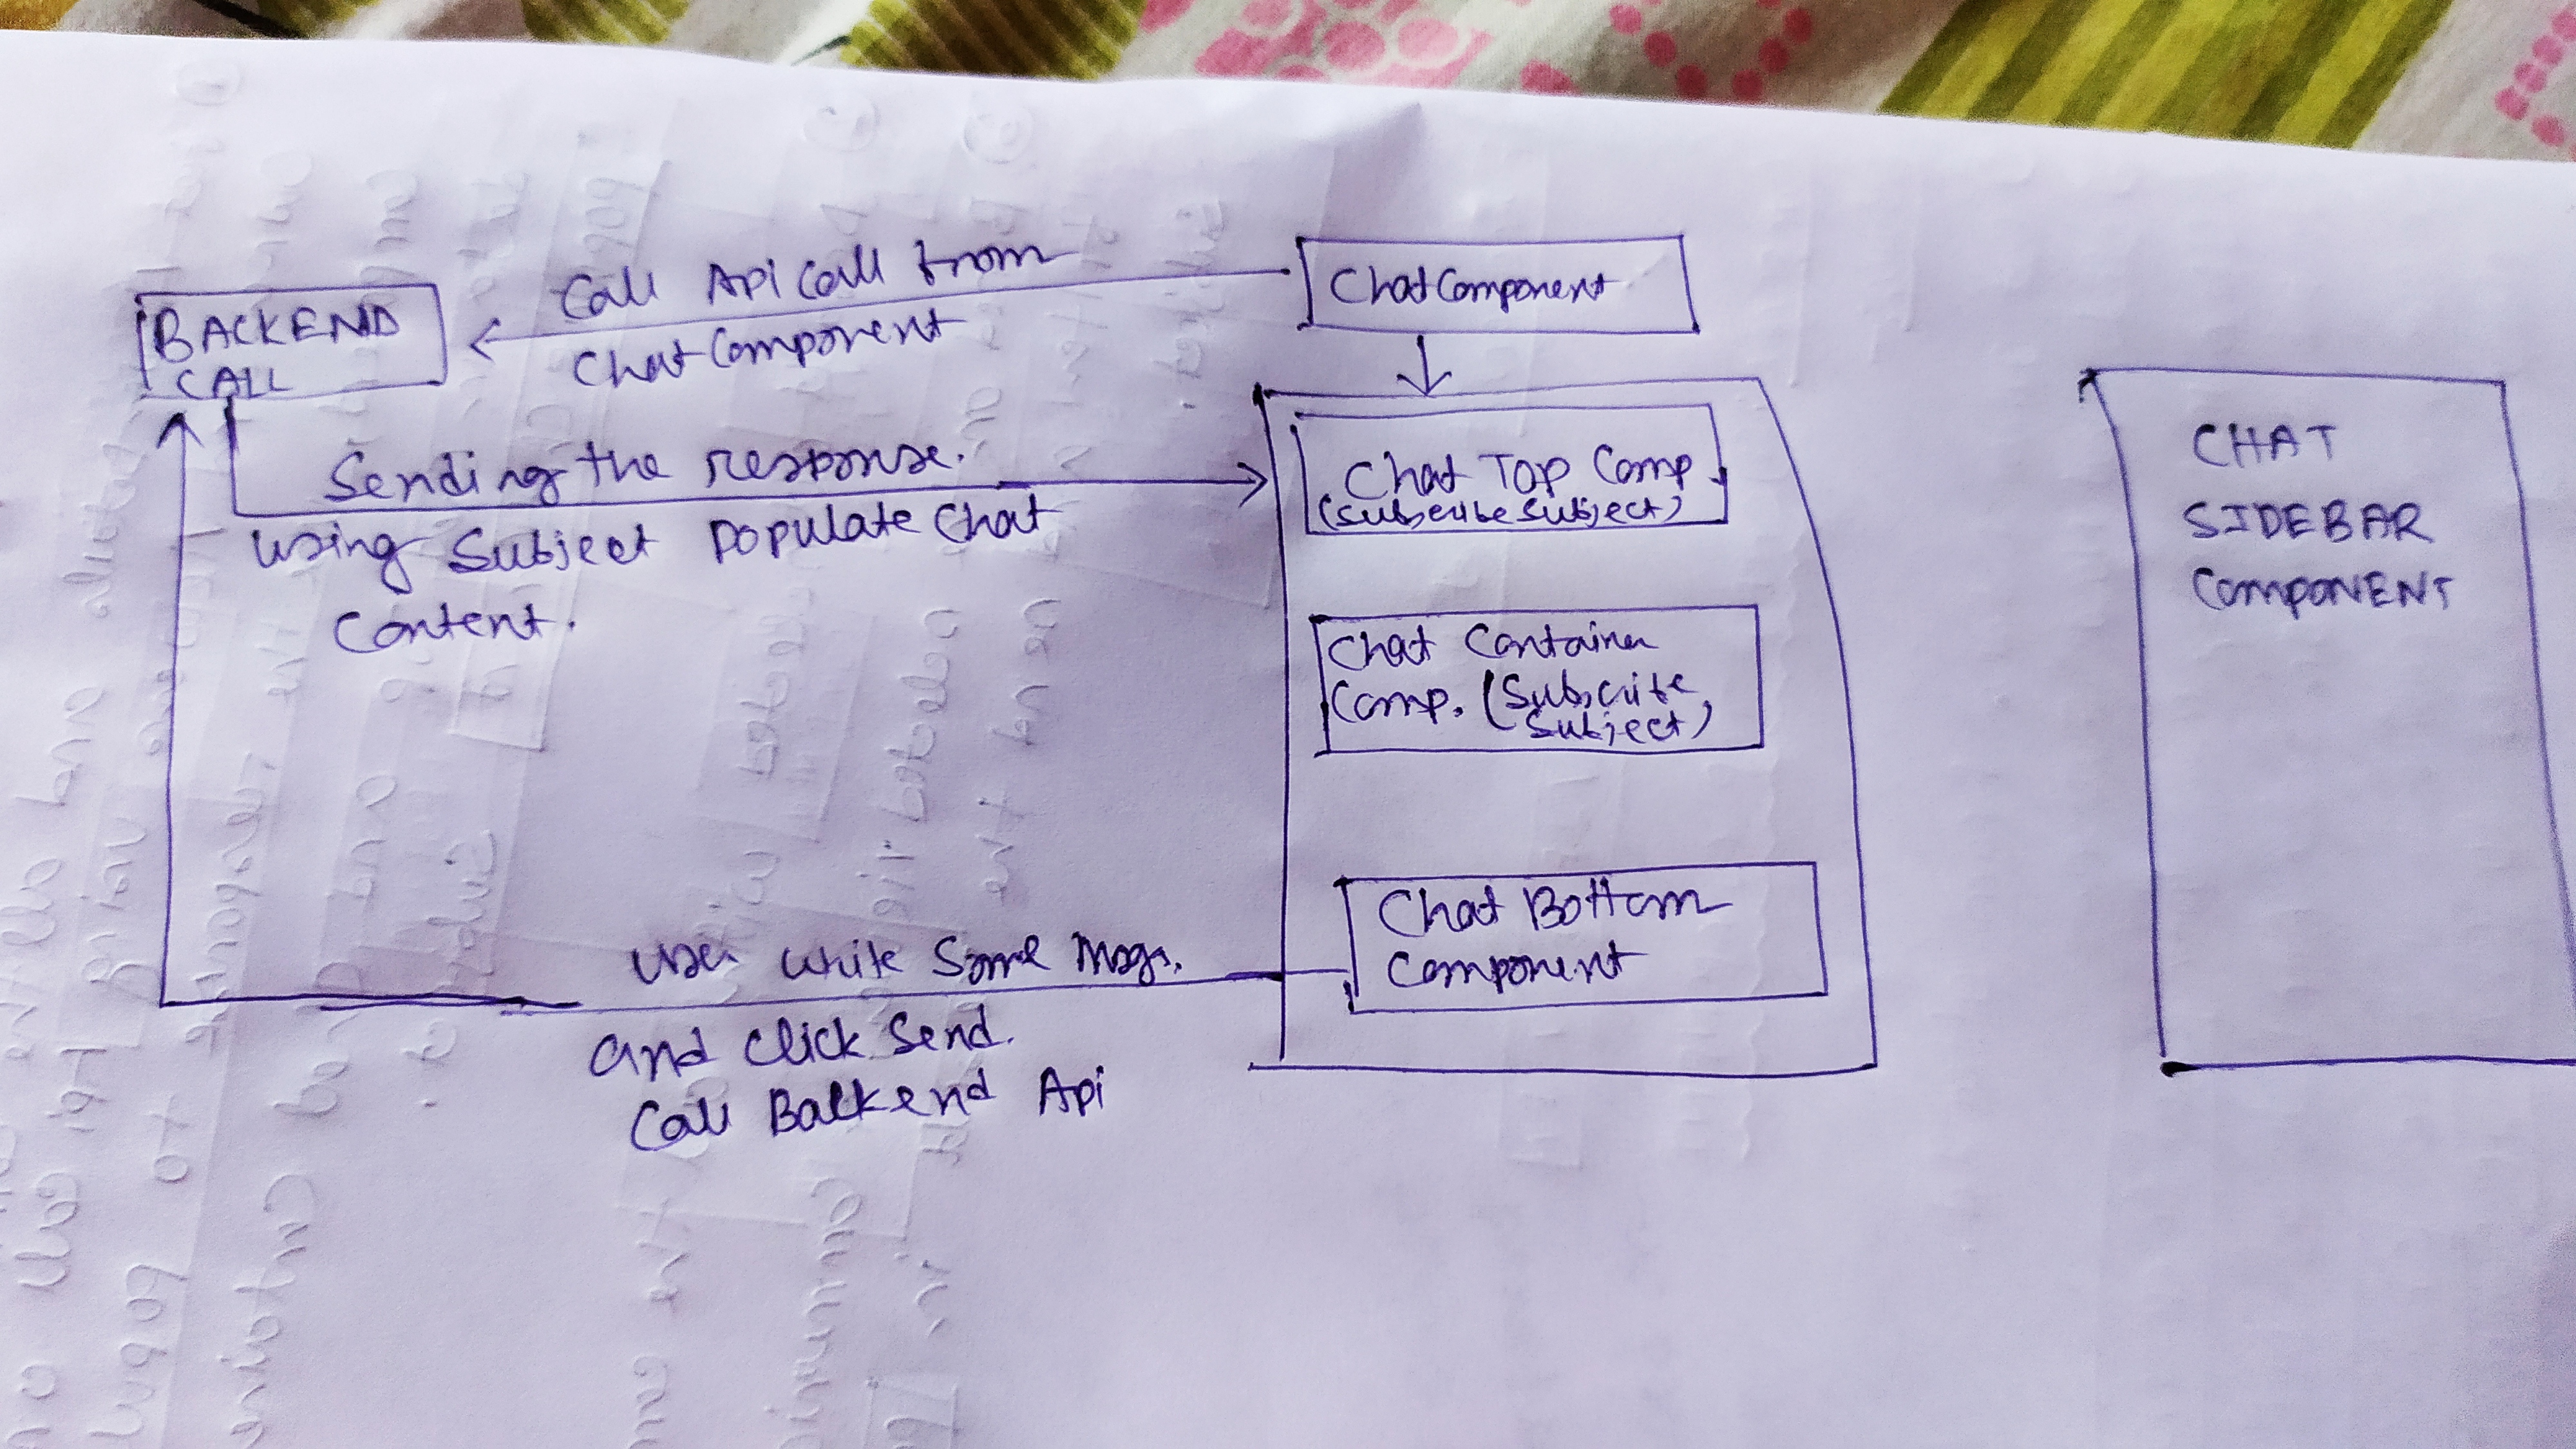 Call Api Call from
ChatComponent
BACKEND
CALL
ChatComponent
Sending the response.
using Subject Populate Chat
Content.
Chat Top Comp.
(Subscribe Subject)
Chat Container
Comp. (Subscribe
Subject)
Chat Bottom
Component
User write Some Msgs.
and Click Send.
Call Backend Api
CHAT
SIDEBAR
COMPONENT